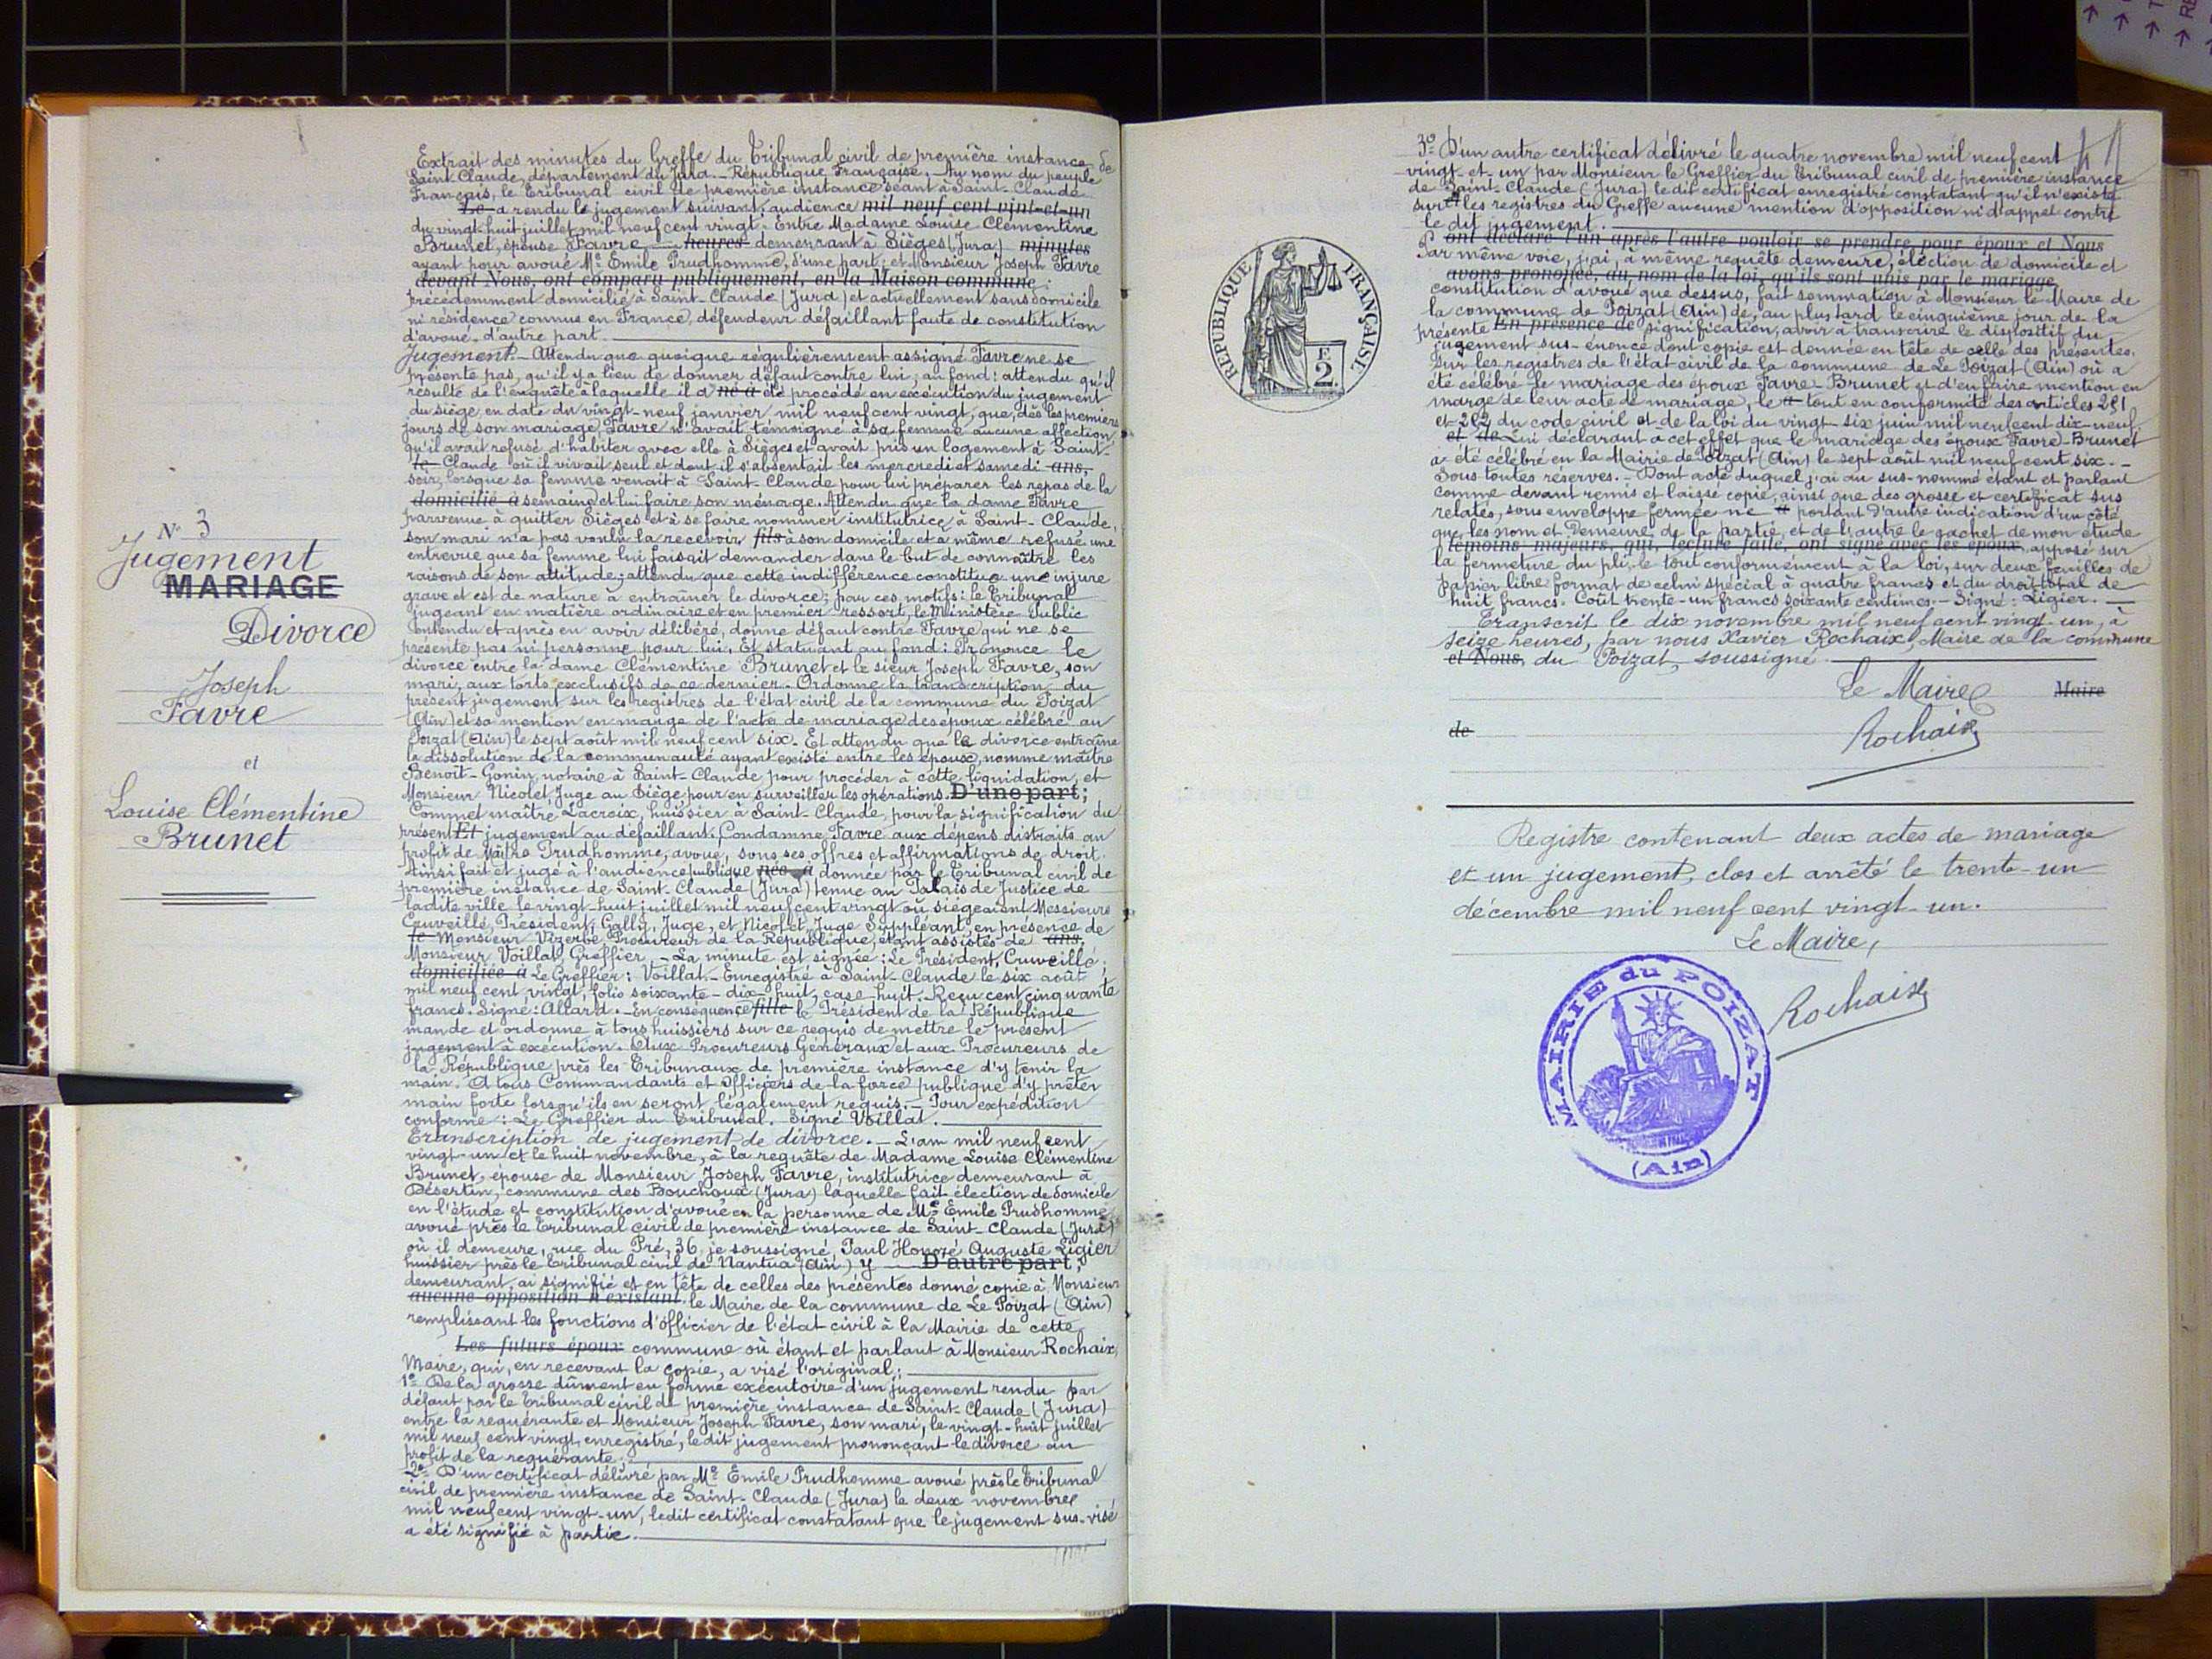 N° 3
Jugement
MARIAGE
Divorce
Joseph
Favre
et
Louise Clémentine
Brunet
Extrait des minutes du Greffe du Tribunal civil de première instance de
Saint-Claude, département du Jura. - République Française. - Au nom du peuple
Français, le Tribunal civil de première instance séant à Saint-Claude
Le a rendu le jugement suivant, audience mil neuf cent vint-et-un
du vingt-huit juillet mil neuf cent vingt. Entre Madame Louise Clémentine
Brunet, épouse Favre heures demeurant à Sièges (Jura) minutes
ayant pour avoué Me Emile Prudhomme, d'une part; et Monsieur Joseph Favre
devant Nous, ont comparu publiquement, en la Maison commune:
précédemment domicilié à Saint-Claude (Jura) et actuellement sans domicile
ni résidence connus en France, défendeur défaillant faute de constitution
d'avoué, d'autre part.
Jugement. - Attendu que quoique régulièrement assigné Favre ne se
présente pas, qu'il y a lieu de donner défaut contre lui; au fond: attendu qu'il
résulte de l'enquête à laquelle il a né à été procédé en exécution du jugement
du siège, en date du vingt-neuf janvier mil neuf cent vingt, que, dès les premiers
jours de son mariage, Favre n'avait témoigné à sa femme aucune affection,
qu'il avait refusé d'habiter avec elle à Sièges et avait pris un logement à Saint-
le Claude où il vivait seul et dont il s'absentait les mercredi et samedi ans,
soir, lorsque sa femme venait à Saint-Claude pour lui préparer les repas de la
domicilié à semaine et lui faire son ménage. Attendu que la dame Favre
parvenue à quitter Sièges et à se faire nommer institutrice à Saint-Claude,
son mari n'a pas voulu la recevoir fils à son domicile et a même refusé une
entrevue que sa femme lui faisait demander dans le but de connaître les
raisons de son attitude; attendu que cette indifférence constitue une injure
grave et est de nature à entraîner le divorce; par ces motifs: le Tribunal
jugeant en matière ordinaire et en premier ressort, le Ministère Public
entendu et après en avoir délibéré, donne défaut contre Favre qui ne se
présente pas ni personne pour lui. Et statuant au fond: Prononce le
divorce entre la dame Clémentine Brunet et le sieur Joseph Favre, son
mari, aux torts exclusifs de ce dernier. Ordonne la transcription du
présent jugement sur les registres de l'état civil de la commune du Poizat
(Ain) et sa mention en marge de l'acte de mariage des époux célébré au
Poizat (Ain) le sept août mil neuf cent six. Et attendu que le divorce entraîne
la dissolution de la communauté ayant existé entre les époux, nomme maître
Benoît-Gonin, notaire à Saint-Claude pour procéder à cette liquidation, et
Monsieur Nicolet, Juge au Siège pour en surveiller les opérations. D'une part;
Commet maître Lacroix, huissier à Saint-Claude, pour la signification du
présent Et jugement au défaillant. Condamne Favre aux dépens distraits au
profit de Maître Prudhomme, avoué, sous ses offres et affirmations de droit.
Ainsi fait et jugé à l'audience publique née à donnée par le Tribunal civil de
première instance de Saint-Claude (Jura) tenue au Palais de Justice de
ladite ville le vingt-huit juillet mil neuf cent vingt où siégeaient Messieurs
Cruveillé, Président, Gally, Juge, et Nicolet, Juge Suppléant, en présence de
le Monsieur Vizerbe Procureur de la République, étant assistés de ans,
Monsieur Voillat, Greffier. - La minute est signée: Le Président, Cruveillé;
domiciliée à Le Greffier: Voillat. - Enregistré à Saint-Claude le six août
mil neuf cent vingt, folio soixante-dix-huit, case huit. Reçu cent cinquante
francs. Signé: Allard. - En conséquence fille le Président de la République
mande et ordonne à tous huissiers sur ce requis de mettre le présent
jugement à exécution. Aux Procureurs Généraux et aux Procureurs de
la République près les Tribunaux de première instance d'y tenir la
main. A tous Commandants et officiers de la force publique d'y prêter
main forte lorsqu'ils en seront légalement requis. - Pour expédition
conforme: Le Greffier du Tribunal. Signé Voillat.
Transcription de jugement de divorce. - L'an mil neuf cent
vingt-un et le huit novembre, à la requête de Madame Louise Clémentine
Brunet, épouse de Monsieur Joseph Favre, institutrice demeurant à
Désertin, commune des Bouchoux (Jura) laquelle fait élection de domicile
en l'étude et constitution d'avoué en la personne de Me Emile Prudhomme
avoué près le Tribunal civil de première instance de Saint-Claude (Jura)
où il demeure, rue du Pré, 36, je soussigné, Paul Honoré Auguste Ligier
huissier près le Tribunal civil de Nantua (Ain) y D'autre part;
demeurant, ai signifié et en tête de celles des présentes donné copie à Monsieur
aucune opposition n'existant. le Maire de la commune de Le Poizat (Ain)
remplissant les fonctions d'officier de l'état civil à la Mairie de cette
Les futurs époux commune où étant et parlant à Monsieur Rochaix,
Maire, qui, en recevant la copie, a visé l'original;
1° De la grosse dûment en forme exécutoire d'un jugement rendu par
défaut par le Tribunal civil de première instance de Saint-Claude (Jura)
entre la requérante et Monsieur Joseph Favre, son mari, le vingt-huit juillet
mil neuf cent vingt, enregistré, ledit jugement prononçant le divorce au
profit de la requérante;
2° D'un certificat délivré par Me Emile Prudhomme avoué près le Tribunal
civil de première instance de Saint-Claude (Jura) le deux novembre
mil neuf cent vingt-un, ledit certificat constatant que le jugement sus-visé
a été signifié à partie.
RÉPUBLIQUE FRANÇAISE.
F.
2.
3° D'un autre certificat délivré le quatre novembre mil neuf cent
vingt-et-un par Monsieur le Greffier du Tribunal civil de première instance
de Saint-Claude (Jura) ledit certificat enregistré constatant qu'il n'existe
sur les registres du Greffe aucune mention d'opposition ni d'appel contre
le dit jugement.
ont déclaré l'un après l'autre vouloir se prendre pour époux et Nous
Par même voie, j'ai, à même requête demeure, élection de domicile et
avons prononcé, au nom de la loi, qu'ils sont unis par le mariage,
constitution d'avoué que dessus, fait sommation à Monsieur le Maire de
la commune de Poizat (Ain) de, au plus tard le cinquième jour de la
présente En présence de signification, avoir à transcrire le dispositif du
jugement sus-énoncé dont copie est donnée en tête de celle des présentes.
Sur les registres de l'état civil de la commune de Le Poizat (Ain) où a
été célébré le mariage des époux Favre-Brunet et d'en faire mention en
marge de leur acte de mariage, le tout en conformité des articles 251
et 252 du code civil et de la loi du vingt six juin mil neuf cent dix-neuf,
et de Lui déclarant à cet effet que le mariage des époux Favre-Brunet
a été célébré en la Mairie de Poizat (Ain) le sept août mil neuf cent six. -
Sous toutes réserves. - Dont acte duquel j'ai au sus-nommé étant et parlant
comme devant remis et laissé copie, ainsi que des grosse et certificat sus
relatés, sous enveloppe fermée ne portant d'autre indication d'un côté
que les nom et demeure de la partie, et de l'autre le cachet de mon étude
témoins majeurs, qui, lecture faite, ont signé avec les époux, apposé sur
la fermeture du pli, le tout conformément à la loi, sur deux feuilles de
papier libre format de celui spécial à quatre francs et du droit total de
huit francs. Coût trente-un francs soixante centimes. - Signé: Ligier.
Transcrit le dix novembre mil neuf cent vingt-un, à
seize heures, par nous Xavier Rochaix, Maire de la commune
et Nous, du Poizat, soussigné.
Le Maire Maire
de
Rochaix
Registre contenant deux actes de mariage
et un jugement, clos et arrêté le trente-un
décembre mil neuf cent vingt-un.
Le Maire,
Rochaix
MAIRIE du POIZAT
(Ain)